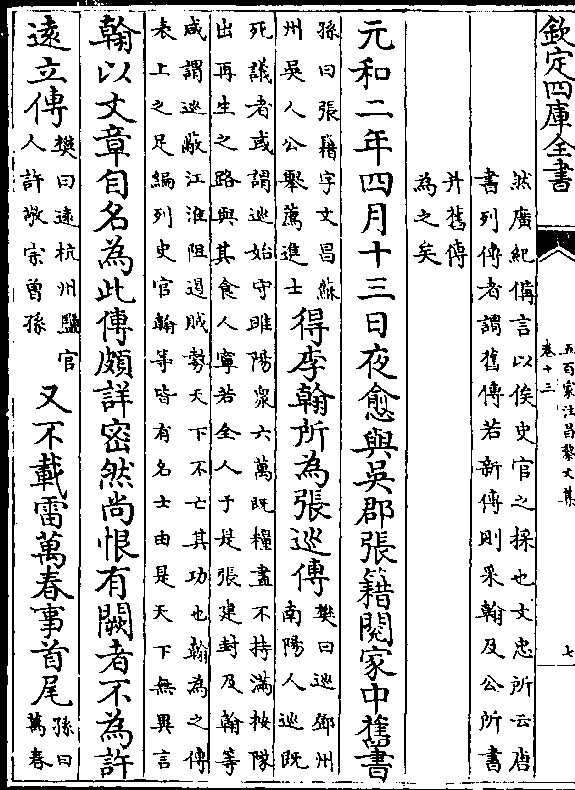 欽定四庫全書
五百家注昌黎文集
卷十三
七
然廣紀備言以俟史官之採也文忠所云唐
書列傳者謂舊傳若新傳則采翰及公所書
并舊傳
為之矣
元和二年四月十三日夜愈與吳郡張籍閱家中舊書
孫曰張籍字文昌蘇
州吳人公舉薦進士
得李翰所為張巡傳
樊曰巡鄧州
南陽人巡既
死議者或謂巡始守睢陽衆六萬既糧盡不持滿按隊
出再生之路與其食人寧若全人于是張建封及翰等
咸謂巡蔽江淮阻遏賊勢天下不亡其功也翰為之傳
表上之足編列史官翰等皆有名士由是天下無異言
翰以文章自名為此傳頗詳密然尚恨有闕者不為許
遠立傳
樊曰遠杭州鹽官
人許敬宗曾孫
又不載雷萬春事首尾
孫曰
萬春